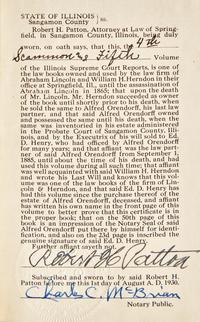 STATE OF ILLINOIS )
Sangamon County ) ss.
Robert H. Patton, Attorney at Law of Spring-
field, in Sangamon County, Illinois, being duly
sworn, on oath says, that this, the 4th
Scammon's, Fifth Volume
of the Illinois Supreme Court Reports, is one
of the law books owned and used by the law firm of
Abraham Lincoln and William H. Herndon in their
office at Springfield, Ill., until the assassination of
Abraham Lincoln in 1865; that upon the death
of Mr. Lincoln, Mr. Herndon succeeded as owner
of the book until shortly prior to his death, when
he sold the same to Alfred Orendorff, his last law
partner, and that said Alfred Orendorff owned
and possessed the same until his death, when the
same was inventoried in his estate administered in
the Probate Court of Sangamon County, Illi-
nois, and by the Executrix of his will sold to Ed.
D. Henry, who had officed by Alfred Orendorff
for many years; and that affiant was the law part-
ner of said Alfred Orendorff from September 1,
1885, until about the time of his death, and had
used this volume during all such time; that affiant
was well acquainted with said William H. Herndon
and wrote his Last Will and knows that this vol-
ume was one of the law books of the firm of Lin-
coln & Herndon, and that said Ed. D. Henry has
had this volume since the purchase thereof of the
estate of Alfred Orendorff, deceased, and affiant
has written his own name in the front page of this
volume to better prove that this certificate is in
the proper book; that on the 50th page of this
book is an impression of the Notary Seal of said
Alfred Orendorff put there by himself for identi-
fication, and also on the 23d page is inscribed the
genuine signature of said Ed. D. Henry.
Further affiant sayeth not.
Robert H Patton
Subscribed and sworn to by said Robert H.
Patton before me this 1st day of August A. D. 1930.
Charles C. McBrian
Notary Public.